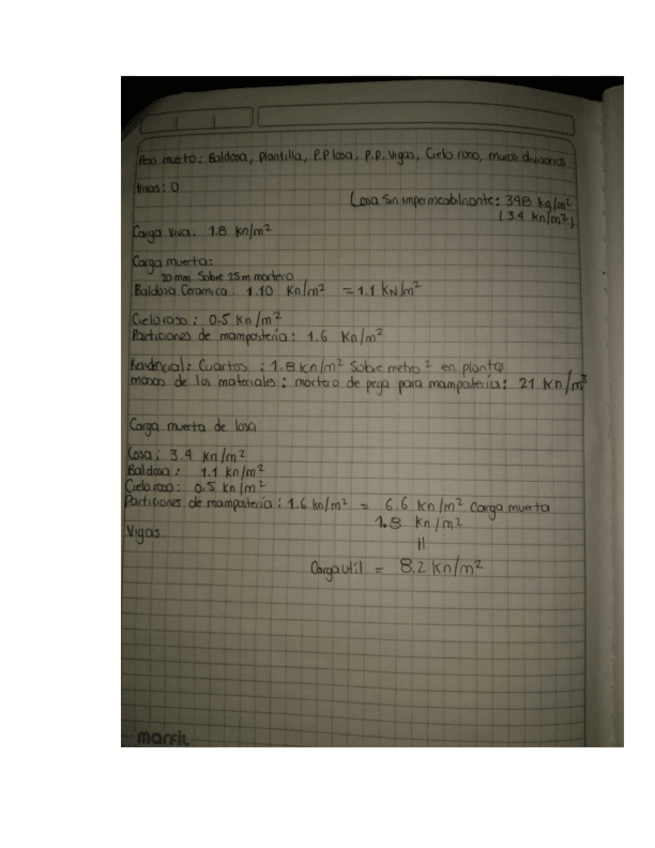 Peso muerto: Baldosa, Plantilla, P.P losa, P.P. Vigas, Cielo raso, muros divisorios
Vivas: 0
Losa Sn. impermeabilnante: 348 kg/m²
(3.4 Kn/m²)
Carga Viva: 1.8 Kn/m²
Carga muerta:
20 mm Sobre 25m mortero
Baldosa Ceramica: 1.10 Kn/m² = 1.1 KN/m²
Cielo raso: 0.5 Kn/m²
Particiones de mampostería: 1.6 Kn/m²
Residencial: Cuartos: 1.8 Kn/m² Sobre metro² en planta
masas de los materiales: mortero de pega para mampostería: 21 Kn/m³
Carga muerta de losa
Losa: 3.4 Kn/m²
Baldosa: 1.1 Kn/m²
Cielo raso: 0.5 Kn/m²
Particiones de mampostería: 1.6 kn/m² = 6.6 Kn/m² Carga muerta
1.8 Kn/m²
Vigas
=
Carga util = 8.2 Kn/m²
marfil